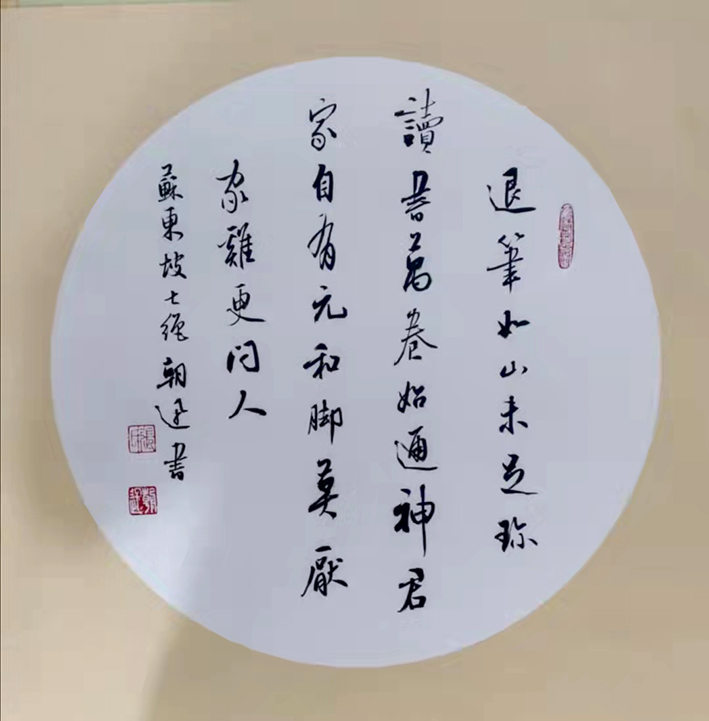 退筆如山未足珍
讀書萬卷始通神君
家自有元和脚莫厭
家雞更问人
蘇東坡七绝朝迅書